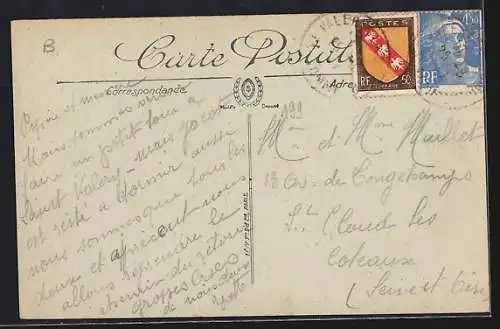 B
Carte Postale
Correspondance
Adre
POSTES
RF
50
4F50
RF
199
Pépée et
Nous sommes venus
faire un petit tour à
Saint Valery - mais
est resté à dormir aussi
nous sommes que tous les
deux et à présent nous
allons reprendre le
chemin du retour
grosses bises
de nous deux
Mr et Mme Maillet
13 Av. de Longchamps
St Cloud les
Coteaux
(Seine et Oise